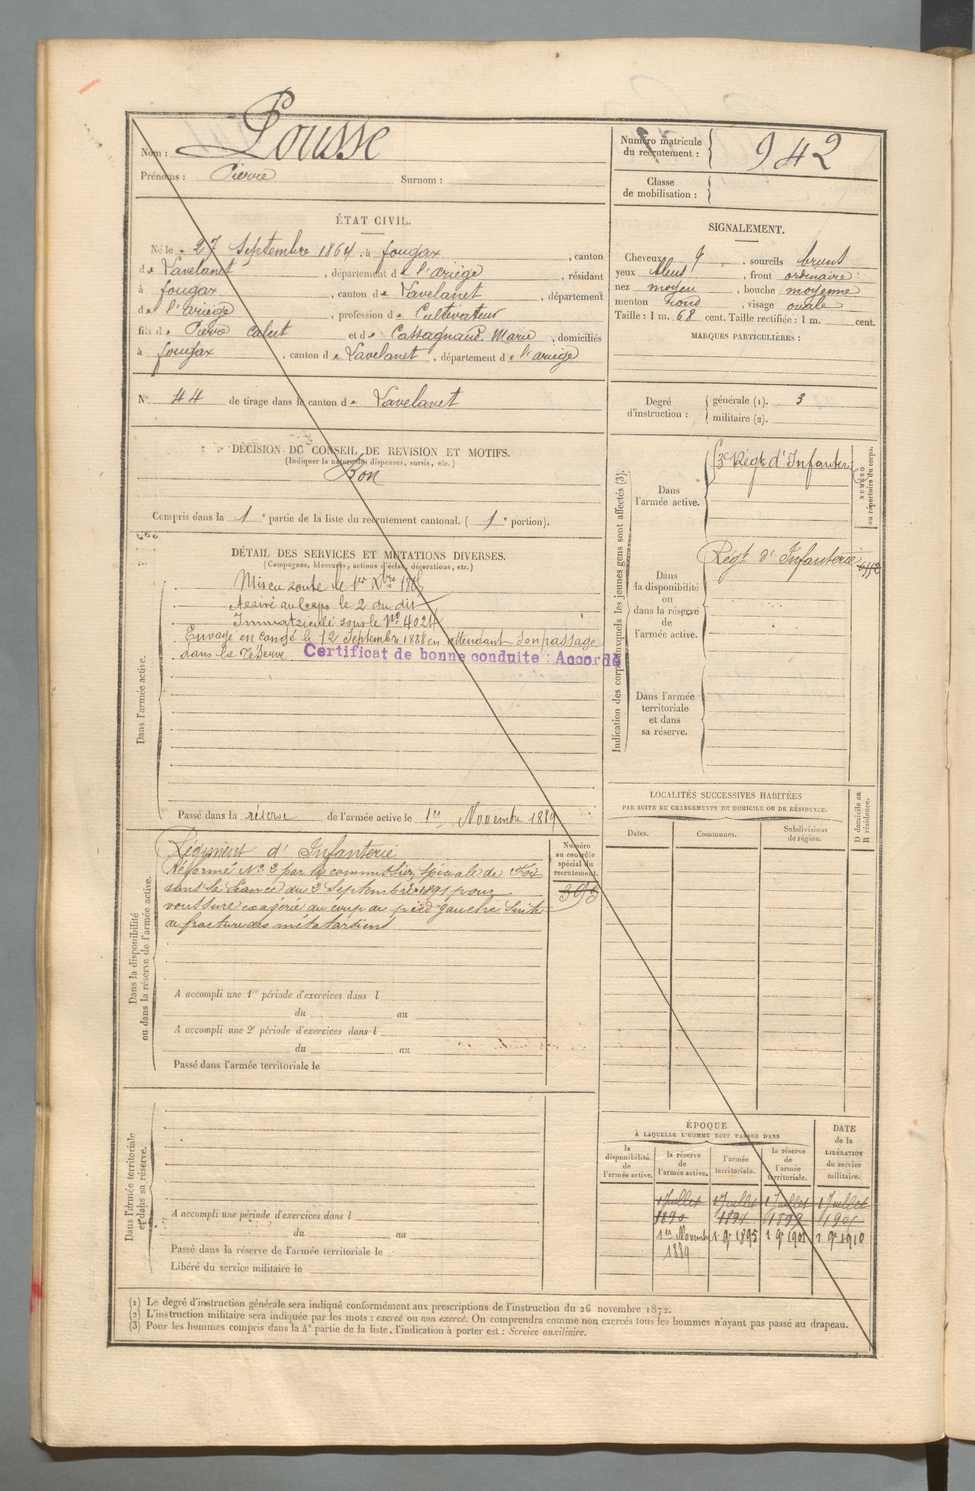 Nom : Pousse
Prénoms : Pierre Surnom :
Numéro matricule du recrutement : 942
Classe de mobilisation :
ÉTAT CIVIL.
Né le 27 Septembre 1864, à fougax, canton
de Lavelanet, département de l'ariège, résidant
à fougax, canton de Lavelanet, département
de l'ariège, profession de Cultivateur
fils de Pierre Calut et de Cassagnaud Marie, domiciliés
à fougax, canton de Lavelanet, département de l'ariège
N° 44 de tirage dans le canton de Lavelanet
DÉCISION DU CONSEIL DE REVISION ET MOTIFS.
(Indiquer la nature des dispenses, sursis, etc.)
Bon
Compris dans la 1e partie de la liste du recrutement cantonal. (1e portion).
DÉTAIL DES SERVICES ET MUTATIONS DIVERSES.
(Campagnes, blessures, actions d'éclat, décorations, etc.)
Dans l'armée active.
Mis en route le 1er Xbre
Arrivé au Corps le 2 du dit
Immatriculé sous le No 4024
Envoyé en congé le 12 Septembre 1888 en attendant son passage
dans la réserve.
Certificat de bonne conduite : Accordé
Passé dans la réserve de l'armée active le 1er Novembre 1889
Dans la disponibilité
ou dans la réserve de l'armée active.
Régiment d'Infanterie
Réformé No 2 par la commission spéciale de Foix
dans la séance du 2 Septembre 1891 pour
voussure exagérée du coup de pied gauche suite
de fracture des métatarsiens
Numéro
au contrôle
spécial du
recrutement.
A accompli une 1re période d'exercices dans l
du au
A accompli une 2e période d'exercices dans l
du au
Passé dans l'armée territoriale le
Dans l'armée territoriale
et dans sa réserve.
A accompli une période d'exercices dans l
du au
Passé dans la réserve de l'armée territoriale le
Libéré du service militaire le
SIGNALEMENT.
Cheveux, sourcils bruns
yeux bleus, front ordinaire
nez moyen, bouche moyenne
menton rond, visage ovale
Taille : 1 m. 68 cent. Taille rectifiée : 1 m. cent.
MARQUES PARTICULIÈRES :
Degré d'instruction : générale (1). 3
militaire (2).
Indication des corps auxquels les jeunes gens sont affectés (3).
NUMÉRO
au répertoire du corps.
Dans
l'armée active.
Régt d'Infanterie
Dans
la disponibilité
ou
dans la réserve
de
l'armée active.
Régt d'Infanterie
Dans l'armée
territoriale
et dans
sa réserve.
LOCALITÉS SUCCESSIVES HABITÉES
PAR SUITE DE CHANGEMENTS DE DOMICILE OU DE RÉSIDENCE.
Dates. Communes. Subdivisions de région.
D domicile ou
R résidence.
ÉPOQUE
À LAQUELLE L'HOMME DOIT PASSER DANS
DATE
de la
LIBÉRATION
du service
militaire.
la disponibilité de l'armée active.
la réserve de l'armée active.
l'armée territoriale.
la réserve de l'armée territoriale.
1 Juillet 1 Juillet 1 Juillet 1 Juillet
1890
1er Novembre 1889
(1) Le degré d'instruction générale sera indiqué conformément aux prescriptions de l'instruction du 26 novembre 1872.
(2) L'instruction militaire sera indiquée par les mots : exercé ou non exercé. On comprendra comme non exercés tous les hommes n'ayant pas passé au drapeau.
(3) Pour les hommes compris dans la 4e partie de la liste, l'indication à porter est : Service auxiliaire.